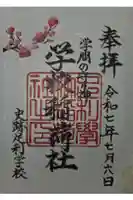 奉拝
令和七年七月六日
学問の子神
学校稲荷社
史跡足利学校